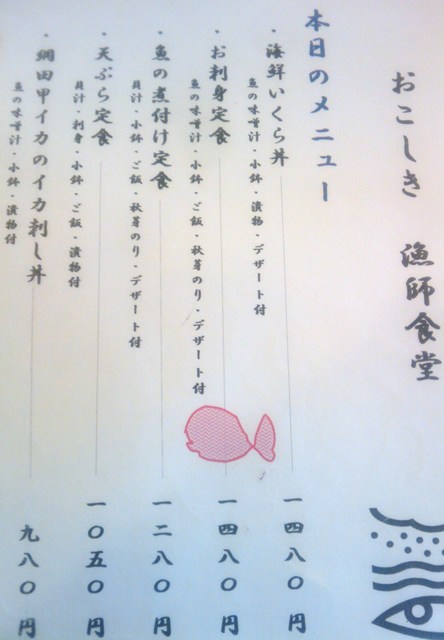 おこしき 漁師食堂
本日のメニュー
・海鮮いくら丼 一四八〇円
魚の味噌汁・小鉢・漬物・デザート付
・お刺身定食 一四八〇円
魚の味噌汁・小鉢・ご飯・秋芽のり・デザート付
・魚の煮付け定食 一二八〇円
貝汁・小鉢・ご飯・秋芽のり・デザート付
・天ぷら定食 一〇五〇円
貝汁・刺身・小鉢・ご飯・漬物付
・網田甲イカのイカ刺し丼 九八〇円
魚の味噌汁・小鉢・漬物付